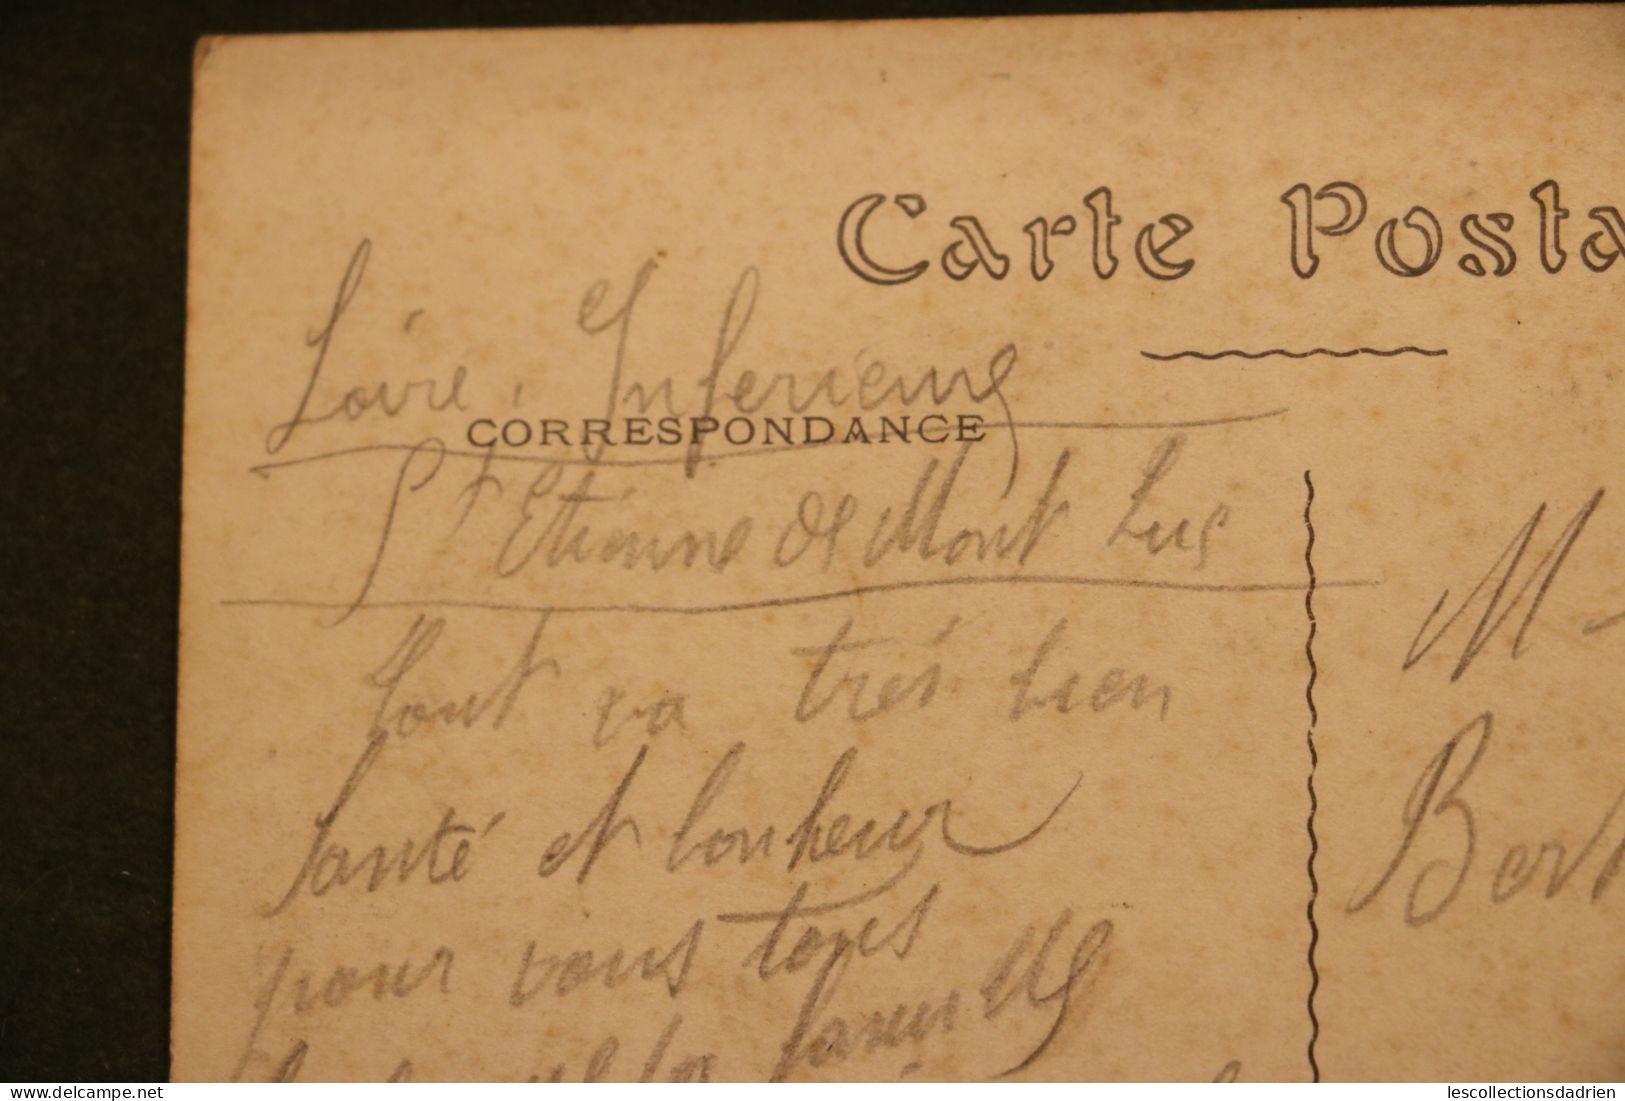 Carte Posta
Loire. Inferieure
CORRESPONDANCE
St Etienne de Mont Luc
Tout va très bien
Santé et bonheur
pour vous tous
la famille
M
Bert
lescollectionsdadrien